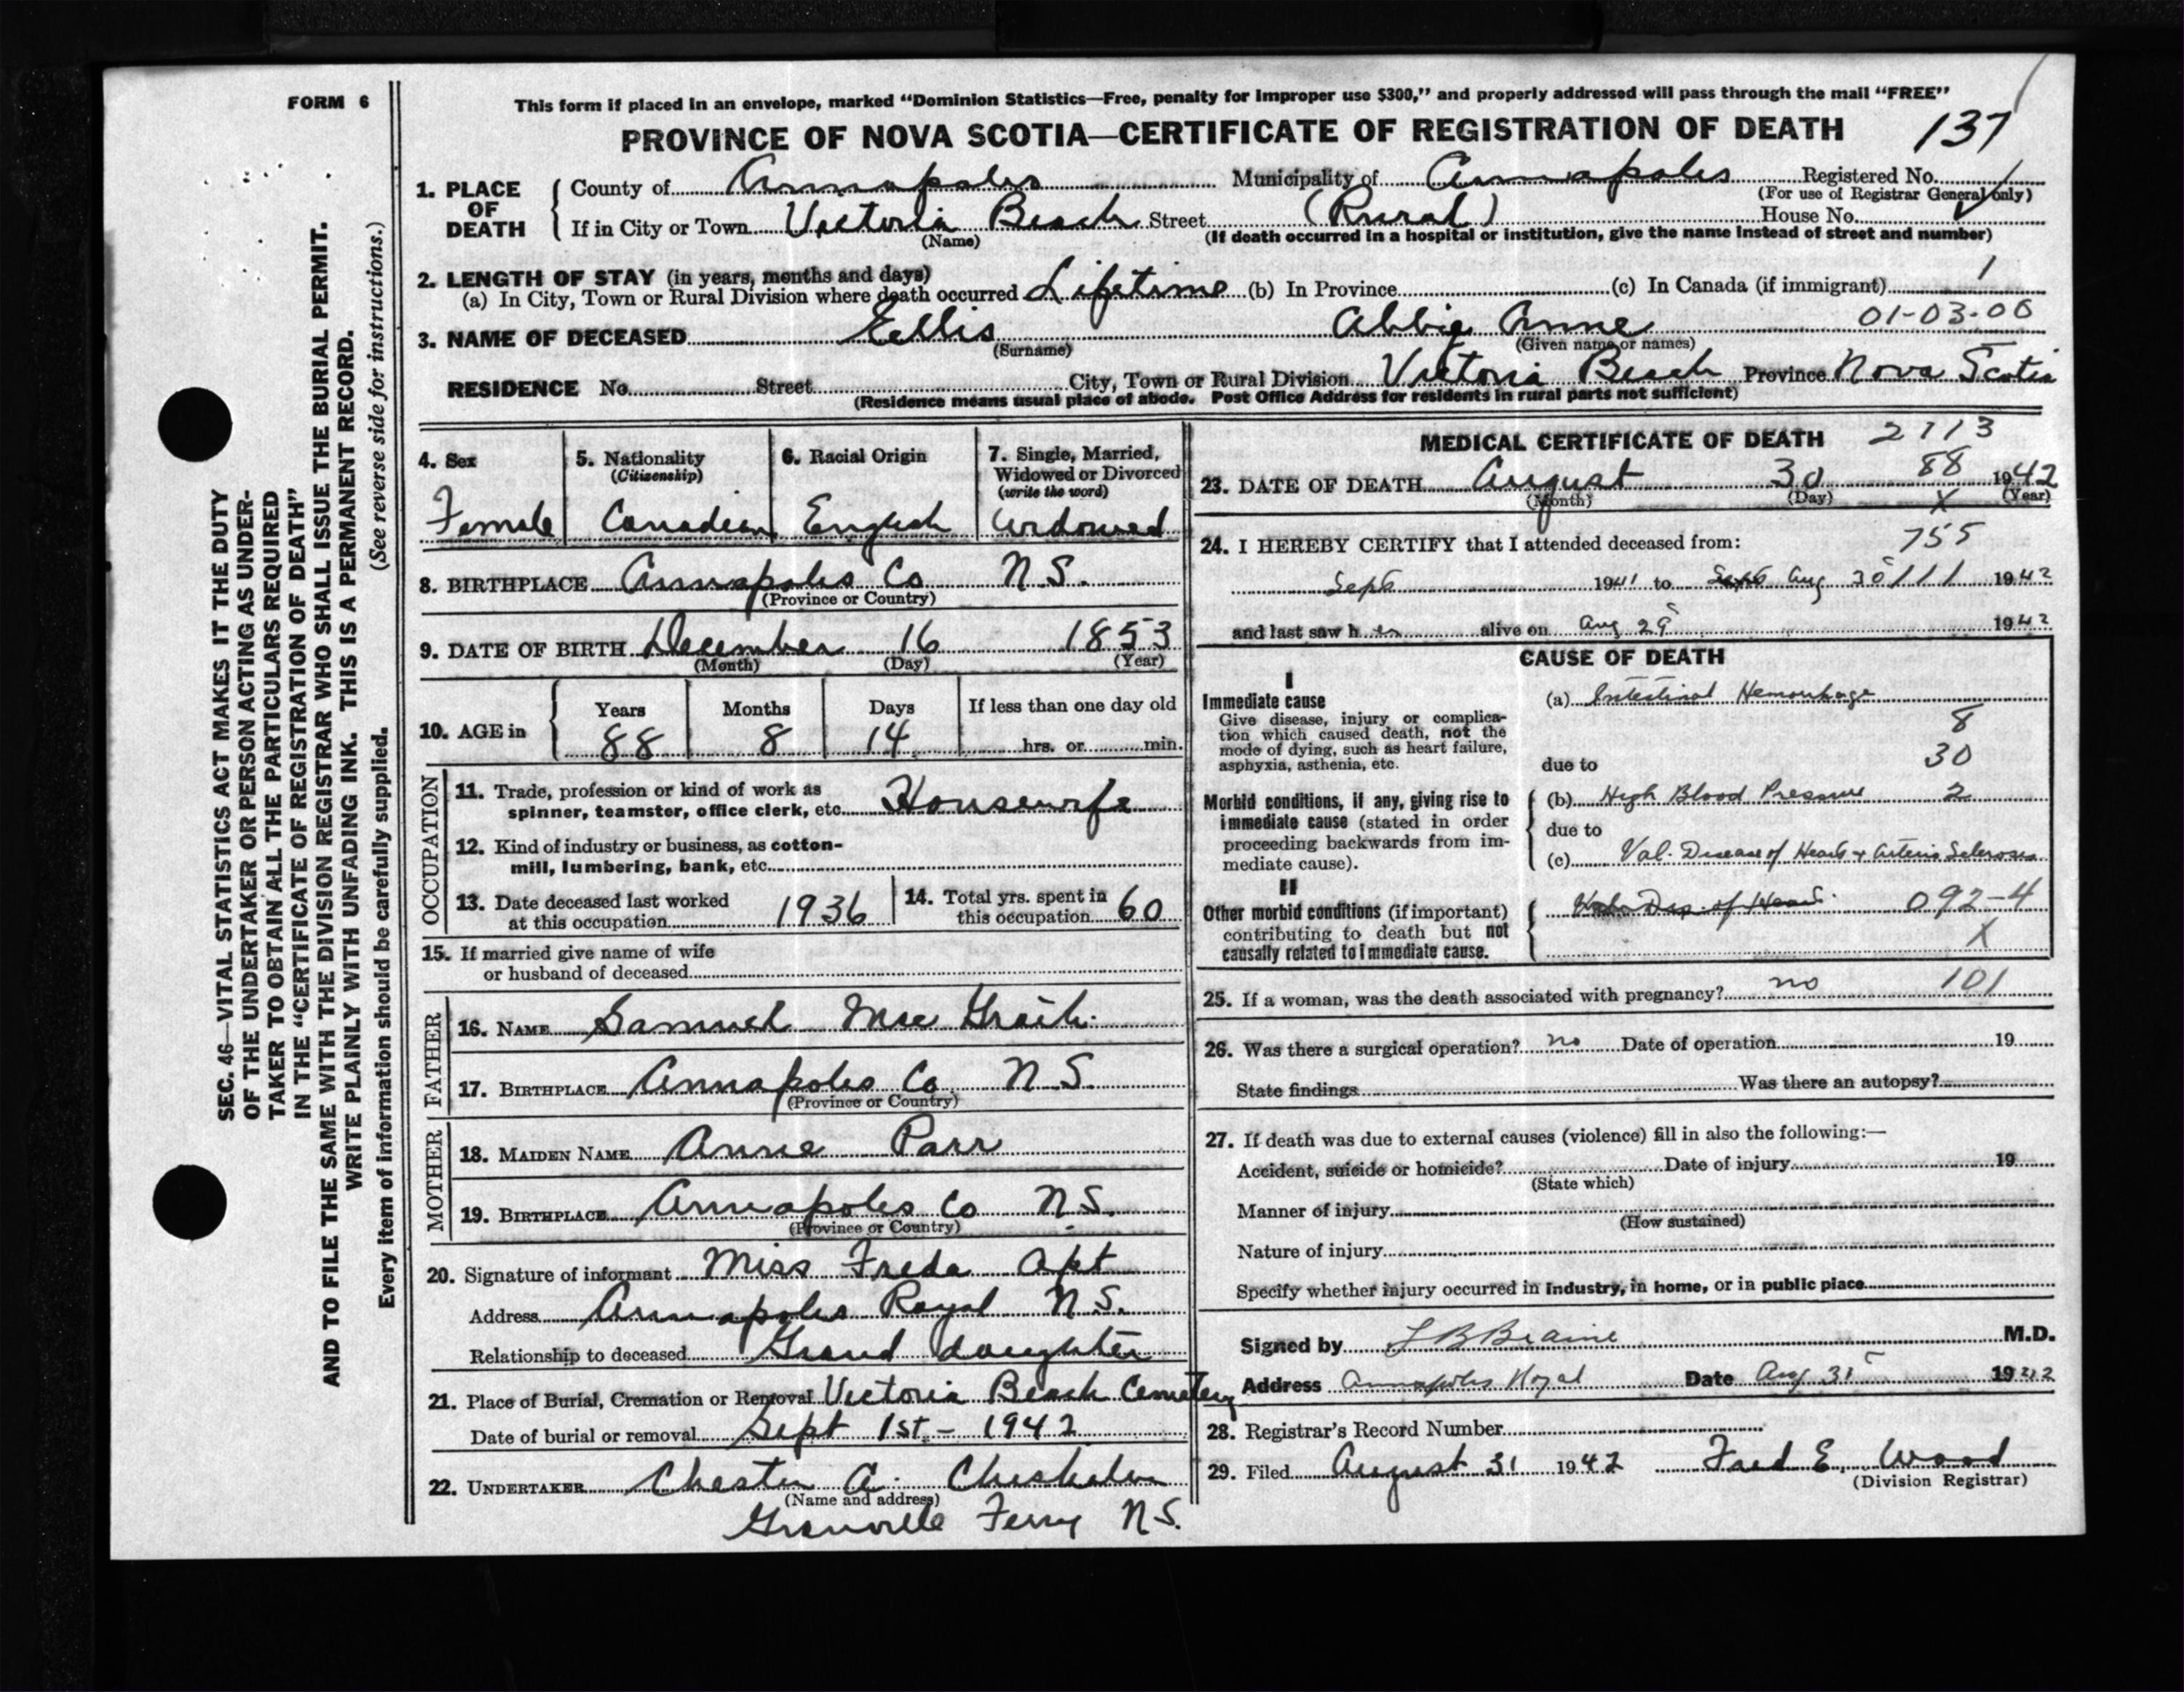 FORM 6
This form if placed in an envelope, marked "Dominion Statistics—Free, penalty for improper use $300," and properly addressed will pass through the mail "FREE"
PROVINCE OF NOVA SCOTIA—CERTIFICATE OF REGISTRATION OF DEATH 137
1. PLACE OF DEATH
County of Annapolis Municipality of Annapolis Registered No.
(For use of Registrar General only)
If in City or Town Victoria Beach Street (Rural) House No.
(Name) (If death occurred in a hospital or institution, give the name instead of street and number)
2. LENGTH OF STAY (in years, months and days) 1
(a) In City, Town or Rural Division where death occurred Lifetime (b) In Province (c) In Canada (if immigrant)
3. NAME OF DECEASED Ellis Abbie Anne 01-03-00
(Surname) (Given name or names)
RESIDENCE No. Street City, Town or Rural Division Victoria Beach Province Nova Scotia
(Residence means usual place of abode. Post Office Address for residents in rural parts not sufficient)
4. Sex 5. Nationality (Citizenship) 6. Racial Origin 7. Single, Married, Widowed or Divorced (write the word)
Female Canadian English Widowed
8. BIRTHPLACE Annapolis Co N.S.
(Province or Country)
9. DATE OF BIRTH December 16 1853
(Month) (Day) (Year)
10. AGE in Years Months Days If less than one day old
88 8 14 hrs. or min.
OCCUPATION
11. Trade, profession or kind of work as
spinner, teamster, office clerk, etc. Housewife
12. Kind of industry or business, as cotton-
mill, lumbering, bank, etc.
13. Date deceased last worked
at this occupation 1936
14. Total yrs. spent in
this occupation 60
15. If married give name of wife
or husband of deceased
FATHER
16. NAME Samuel
17. BIRTHPLACE Annapolis Co N.S.
(Province or Country)
MOTHER
18. MAIDEN NAME Anne Parr
19. BIRTHPLACE Annapolis Co N.S.
(Province or Country)
20. Signature of informant Miss Freda Apt
Address Annapolis Royal N.S.
Relationship to deceased Grand daughter
21. Place of Burial, Cremation or Removal Victoria Beach Cemetery
Date of burial or removal Sept 1st - 1942
22. UNDERTAKER Chester A. Chisholm
(Name and address)
Granville Ferry N.S.
MEDICAL CERTIFICATE OF DEATH 2113
88
23. DATE OF DEATH August 30 1942
(Month) (Day) (Year)
X
24. I HEREBY CERTIFY that I attended deceased from: 755
Sept 1941 to Sept Aug 30 111 1942
and last saw her alive on Aug 29 1942
CAUSE OF DEATH
I
Immediate cause
Give disease, injury or complica-
tion which caused death, not the
mode of dying, such as heart failure,
asphyxia, asthenia, etc.
(a) Intestinal Hemorrhage
8
due to 30
Morbid conditions, if any, giving rise to
immediate cause (stated in order
proceeding backwards from im-
mediate cause).
(b) High Blood Pressure 2
due to
(c) Val. Disease of Heart + Arterio Sclerosis
II
Other morbid conditions (if important)
contributing to death but not
causally related to immediate cause.
of Heart 092-4
X
25. If a woman, was the death associated with pregnancy? no 101
26. Was there a surgical operation? no Date of operation 19
State findings Was there an autopsy?
27. If death was due to external causes (violence) fill in also the following:—
Accident, suicide or homicide? Date of injury 19
(State which)
Manner of injury
(How sustained)
Nature of injury
Specify whether injury occurred in industry, in home, or in public place
Signed by L B Braine M.D.
Address Annapolis Royal Date Aug 31 1942
28. Registrar's Record Number
29. Filed August 31 1942 Fred E. Wood
(Division Registrar)
SEC. 46—VITAL STATISTICS ACT MAKES IT THE DUTY
OF THE UNDERTAKER OR PERSON ACTING AS UNDER-
TAKER TO OBTAIN ALL THE PARTICULARS REQUIRED
IN THE "CERTIFICATE OF REGISTRATION OF DEATH"
AND TO FILE THE SAME WITH THE DIVISION REGISTRAR WHO SHALL ISSUE THE BURIAL PERMIT.
WRITE PLAINLY WITH UNFADING INK. THIS IS A PERMANENT RECORD.
Every item of information should be carefully supplied. (See reverse side for instructions.)